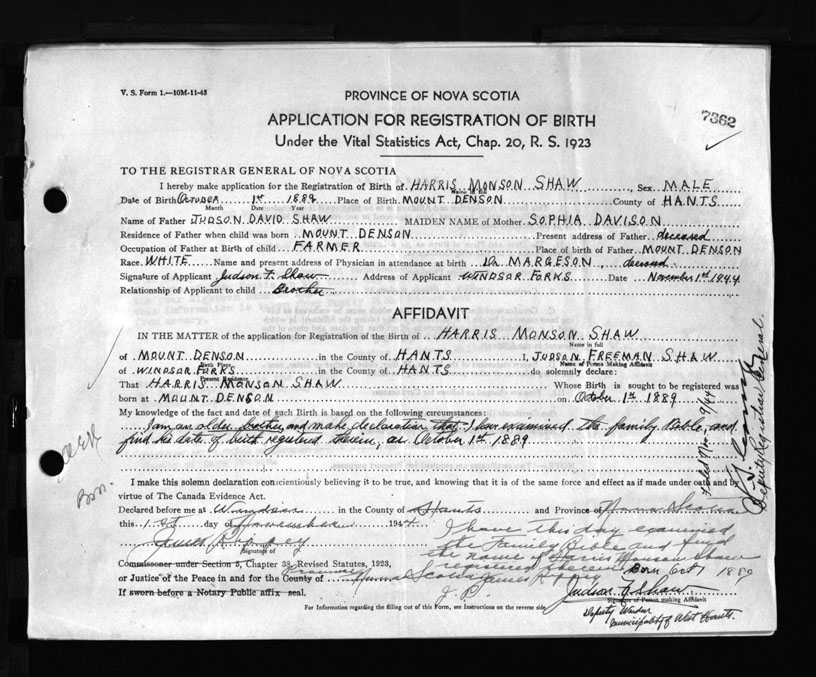 V. S. Form 1.—10M-11-43
PROVINCE OF NOVA SCOTIA
7362
APPLICATION FOR REGISTRATION OF BIRTH
Under the Vital Statistics Act, Chap. 20, R. S. 1923
TO THE REGISTRAR GENERAL OF NOVA SCOTIA
I hereby make application for the Registration of Birth of HARRIS MONSON SHAW, Sex MALE
Name in full
Date of Birth October 1st 1889 Place of Birth MOUNT DENSON County of HANTS
Month Date Year
Name of Father JUDSON DAVID SHAW MAIDEN NAME of Mother SOPHIA DAVISON
Residence of Father when child was born MOUNT DENSON Present address of Father deceased
Occupation of Father at Birth of child FARMER Place of birth of Father MOUNT DENSON
Race WHITE Name and present address of Physician in attendance at birth DR. MARGESON, deceased
Signature of Applicant Judson F. Shaw Address of Applicant WINDSOR FORKS Date November 1st 1944
Relationship of Applicant to child Brother
AFFIDAVIT
IN THE MATTER of the application for Registration of the Birth of HARRIS MONSON SHAW
Name in full
of MOUNT DENSON in the County of HANTS I, JUDSON FREEMAN SHAW
Birth Place Name of Person Making Affidavit
of WINDSOR FORKS in the County of HANTS do solemnly declare:
Present Residence
That HARRIS MONSON SHAW Whose Birth is sought to be registered was
born at MOUNT DENSON on October 1st 1889
My knowledge of the fact and date of such Birth is based on the following circumstances:
I am an older brother and make declaration that I have examined the family Bible and
find his date of birth registered therein, as October 1st 1889
I make this solemn declaration conscientiously believing it to be true, and knowing that it is of the same force and effect as if made under oath and by
virtue of The Canada Evidence Act.
Declared before me at Windsor in the County of Hants and Province of Nova Scotia
this 1st day of November 1944
I have this day examined
the Family Bible and find
the name of Harris Monson Shaw
registered therein Born Oct 1 1889
Signature of
Commissioner under Section 5, Chapter 38, Revised Statutes, 1923,
or Justice of the Peace in and for the County of Province Nova Scotia
J. P.
Judson F. Shaw
Signature of Person making Affidavit
If sworn before a Notary Public affix seal.
Deputy Warden
Municipality of West Hants.
For Information regarding the filling out of this Form, see Instructions on the reverse side
Born
Filed Nov 9/44
Deputy Registrar General.